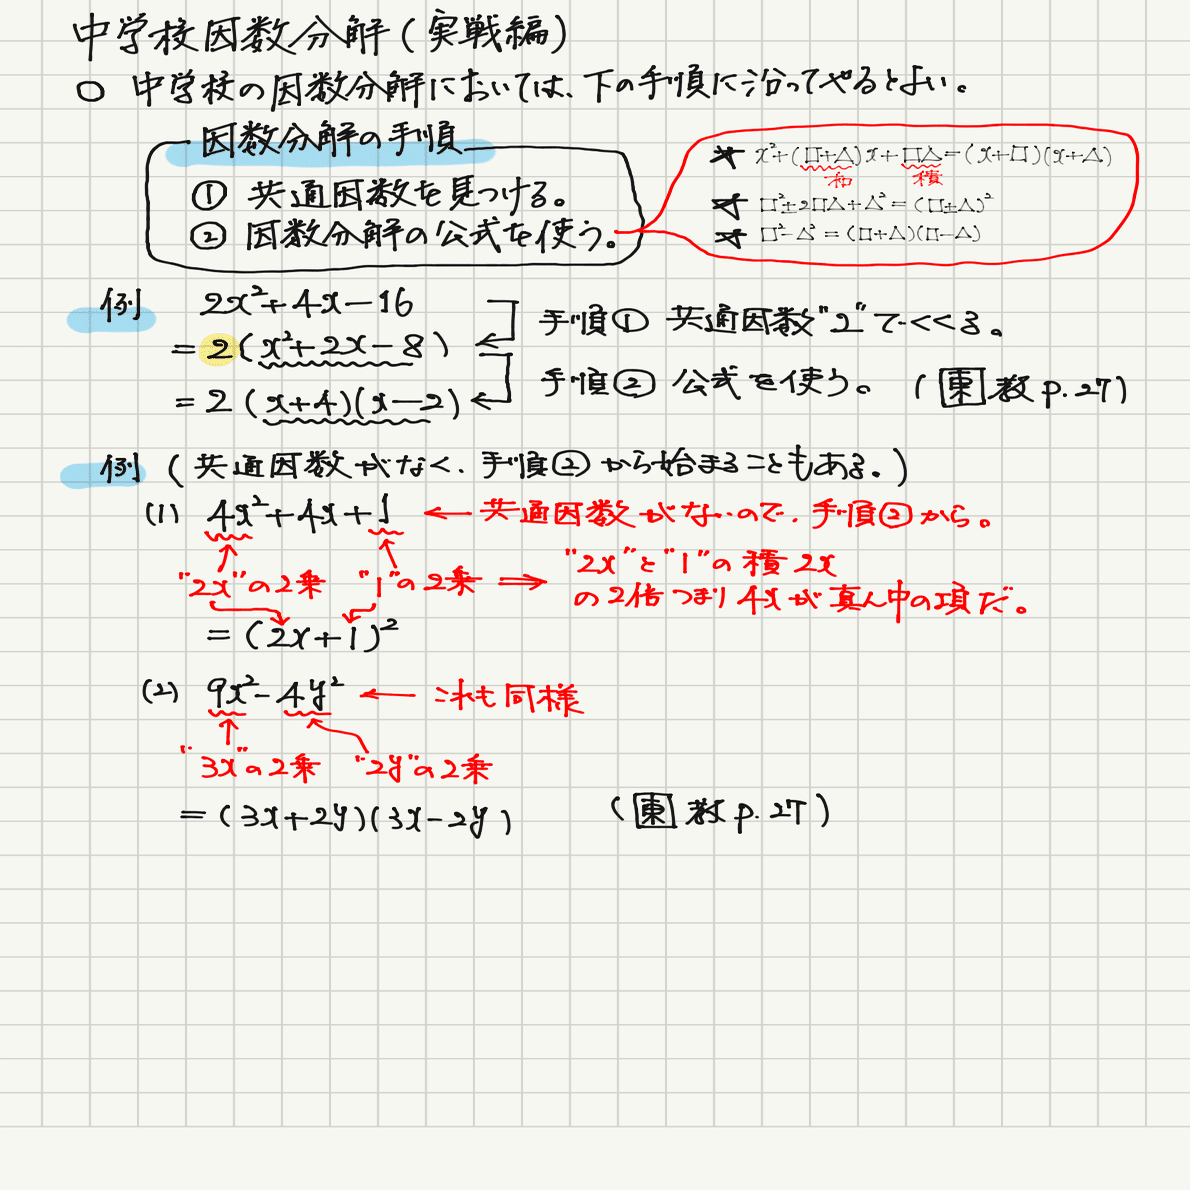 中学校因数分解(実戦編)
○ 中学校の因数分解においては、下の手順に沿ってやるとよい。
因数分解の手順
① 共通因数を見つける。
② 因数分解の公式を使う。
★ x²+(□+△)x+□△=(x+□)(x+△)
和 積
★ □²±2□△+△²=(□±△)²
★ □²-△²=(□+△)(□-△)
例 2x²+4x-16
手順① 共通因数"2"でくくる。
=2(x²+2x-8)
手順② 公式を使う。 (東教p.27)
=2(x+4)(x-2)
例 (共通因数がなく、手順②から始まることもある。)
(1) 4x²+4x+1 ← 共通因数がないので、手順②から。
"2x"の2乗 "1"の2乗 ⇒ "2x"と"1"の積2x
の2倍つまり4xが真ん中の項だ。
=(2x+1)²
(2) 9x²-4y² ← これも同様
"3x"の2乗 "2y"の2乗
=(3x+2y)(3x-2y) (東教p.27)